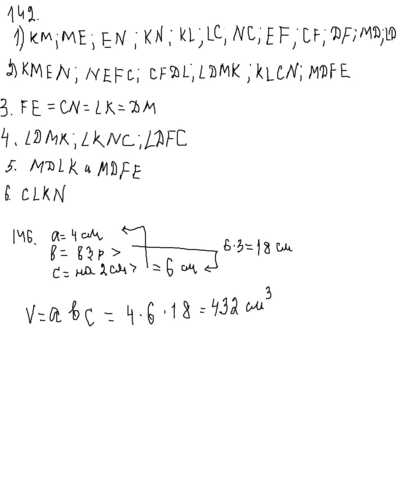 142.
1) KM; ME; EN; KN; KL; LC; NC; EF; CF; DF; MD; LD
2) KMEN; NEFC; CFDL; LDMK; KLCN; MDFE
3. FE = CN = LK = DM
4. LDMK; LKNC; LDFC
5. MDLK и MDFE
6. CLKN
146. a = 4 см
b = в 3 р > 6·3 = 18 см
c = на 2 см > = 6 см
V = a b c = 4·6·18 = 432 см³